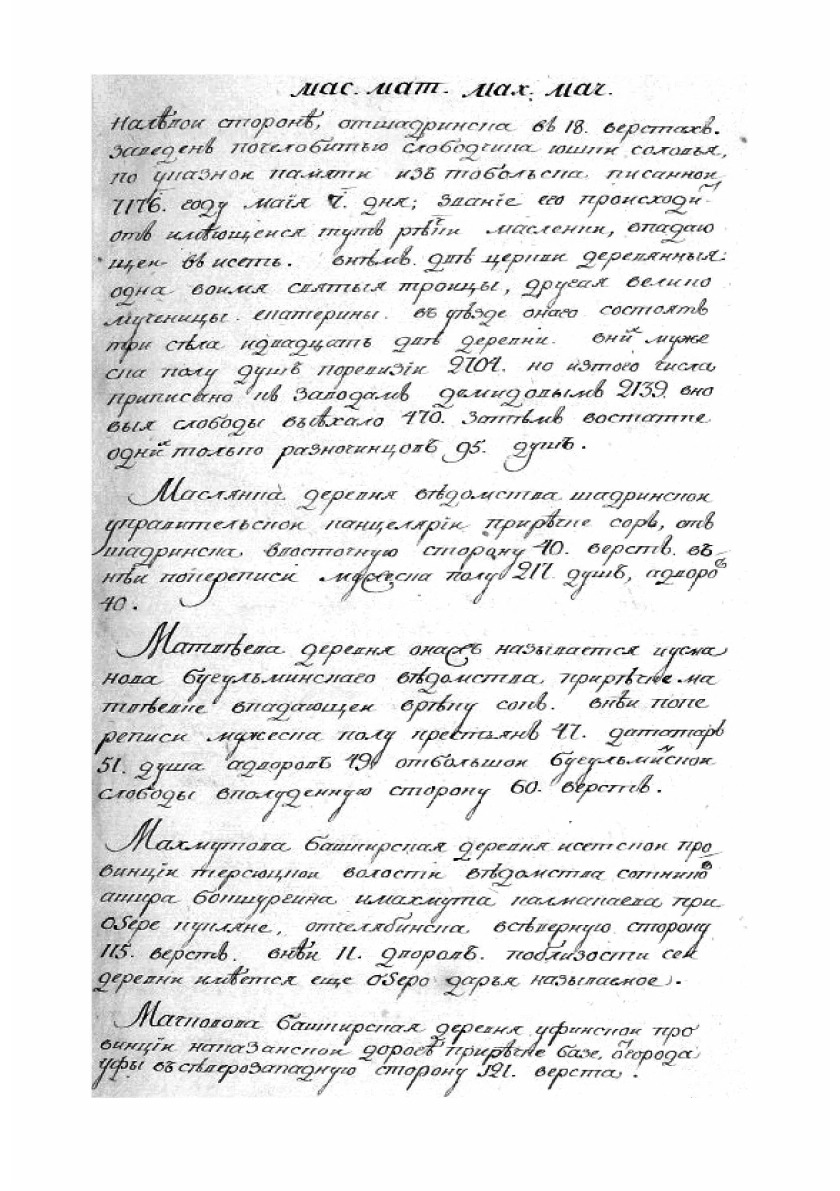 мас. мат. мах. мач.
налѣвои сторонѣ, отшадринска въ 18. верстахъ.
заведенъ почелобитью слободчика юшки соловья,
по указнои памяти изъ тобольска писаннои
7176. году маія 7. дня; званіе его происходи
отъ имѣющеися тутъ рѣчки масленки, впадаю
щеи въ исеть. внѣмъ двѣ церкви деревянныя:
одна воимя святыя троицы, другая велико
мученицы екатерины. въ уѣзде онаго состоятъ
три села идвадцать двѣ деревни. вни муже
ска полу душъ поревизіи 2704. но изтого числа
приписано къ заводамъ демидовымъ 2139. вно
выя слободы выѣхало 470. затѣмъ востатке
одни только разночинцовъ 95. душъ.
Маслянна деревня вѣдомства шадринскои
управительскои канцеляріи прирѣчке соръ, отъ
шадринска, ввосточную сторону 40. верстъ. въ
нѣи попереписи мужеска полу 217. душъ, адворо
40.
Матвѣева деревня онажъ называется кусма
нова бугульминскаго вѣдомства, прирѣчке ма
твѣевке впадающеи врѣку сокъ. внѣи попе
реписи мужеска полу крестьянъ 47. дататаръ
51. душа адворовъ 49. отбольшои бугульминскои
слободы вполуденную сторону 60. верстъ.
Махмутова башкирская деревня исетскои про
винціи терсюцкои волости вѣдомства сотнико
аиира ботшургина имахмута калмакаева при
озере куяляне, отчелябинска всѣверную сторону
115. верстъ. внѣи 11. дворовъ. поблизости сеи
деревни имѣется еще озеро даръя называемое.
Мачполова башкирская деревня уфинскои про
винціи наказанскои дорогѣ прирѣчке базе, огорода
уфы въсѣверозападную сторону 121. верста.